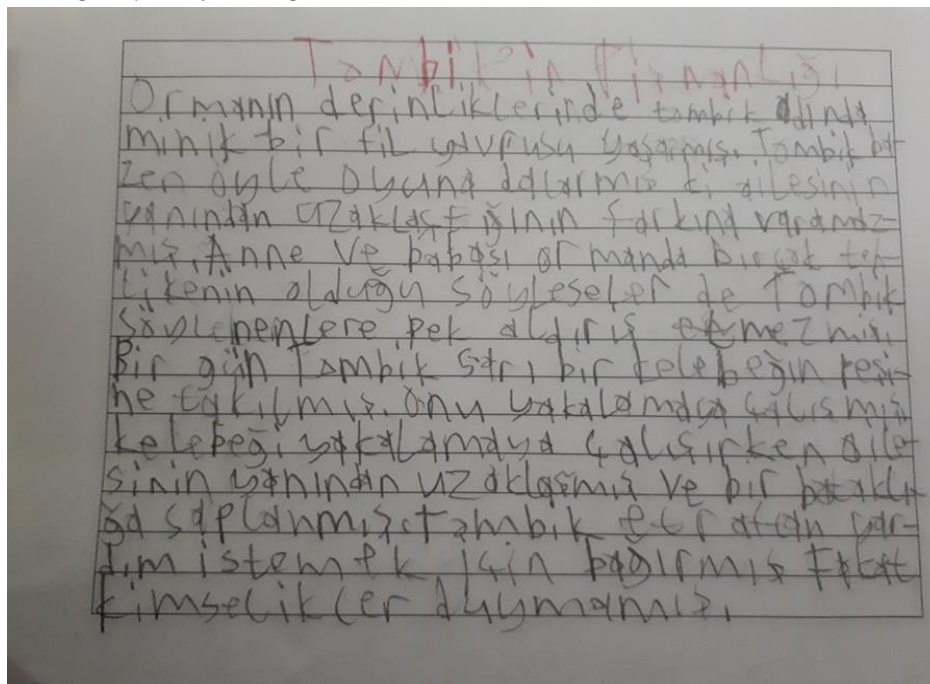 Tombik'in Pişmanlığı
Ormanın derinliklerinde tombik adında
minik bir fil yavrusu yaşarmış. Tombik ba-
zen öyle oyuna dalarmış ki ailesinin
yanından uzaklaştığının farkına varamaz-
mış. Anne ve babası ormanda birçok teh-
likenin olduğu söyleseler de Tombik
söylenenlere pek aldırış etmezmiş.
Bir gün Tombik sarı bir kelebeğin peşi-
ne takılmış. Onu yakalamaya çalışmış
kelebeği yakalamaya çalışırken aile
sinin yanından uzaklaşmış ve bir bataklı
ğa saplanmış. Tombik etraftan yar-
dım istemek için bağırmış fakat
kimselikler duymamış.